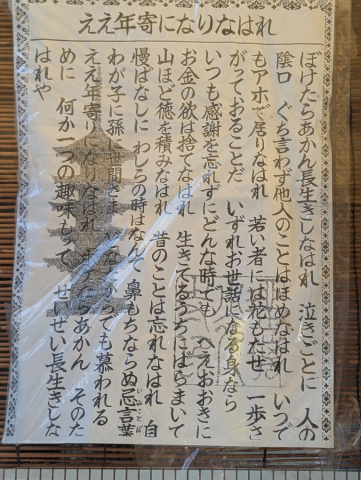 ええ年寄になりなはれ
ぼけたらあかん長生きしなはれ　泣きごとに　人の
陰口　ぐち言わず他人のことはほめなはれ　いつで
もアホで居りなはれ　若い者には花もたせ　一歩さ
がっておることだ　いずれお世話になる身なら
いつも感謝を忘れずにどんな時でも　へえおおきに
お金の欲は捨てなはれ　生きてるうちにばらまいて
山ほど徳を積みなはれ　昔のことは忘れなはれ　自
慢ばなしにわしらの時はなんて　鼻もちならぬ忌言葉
ことば
わが子に孫に世間さま　どなたからでも慕われる
ええ年寄りになりなはれ　ぼけたらあかん　そのた
めに　何か一つの趣味もって　せいぜい長生きしな
はれや